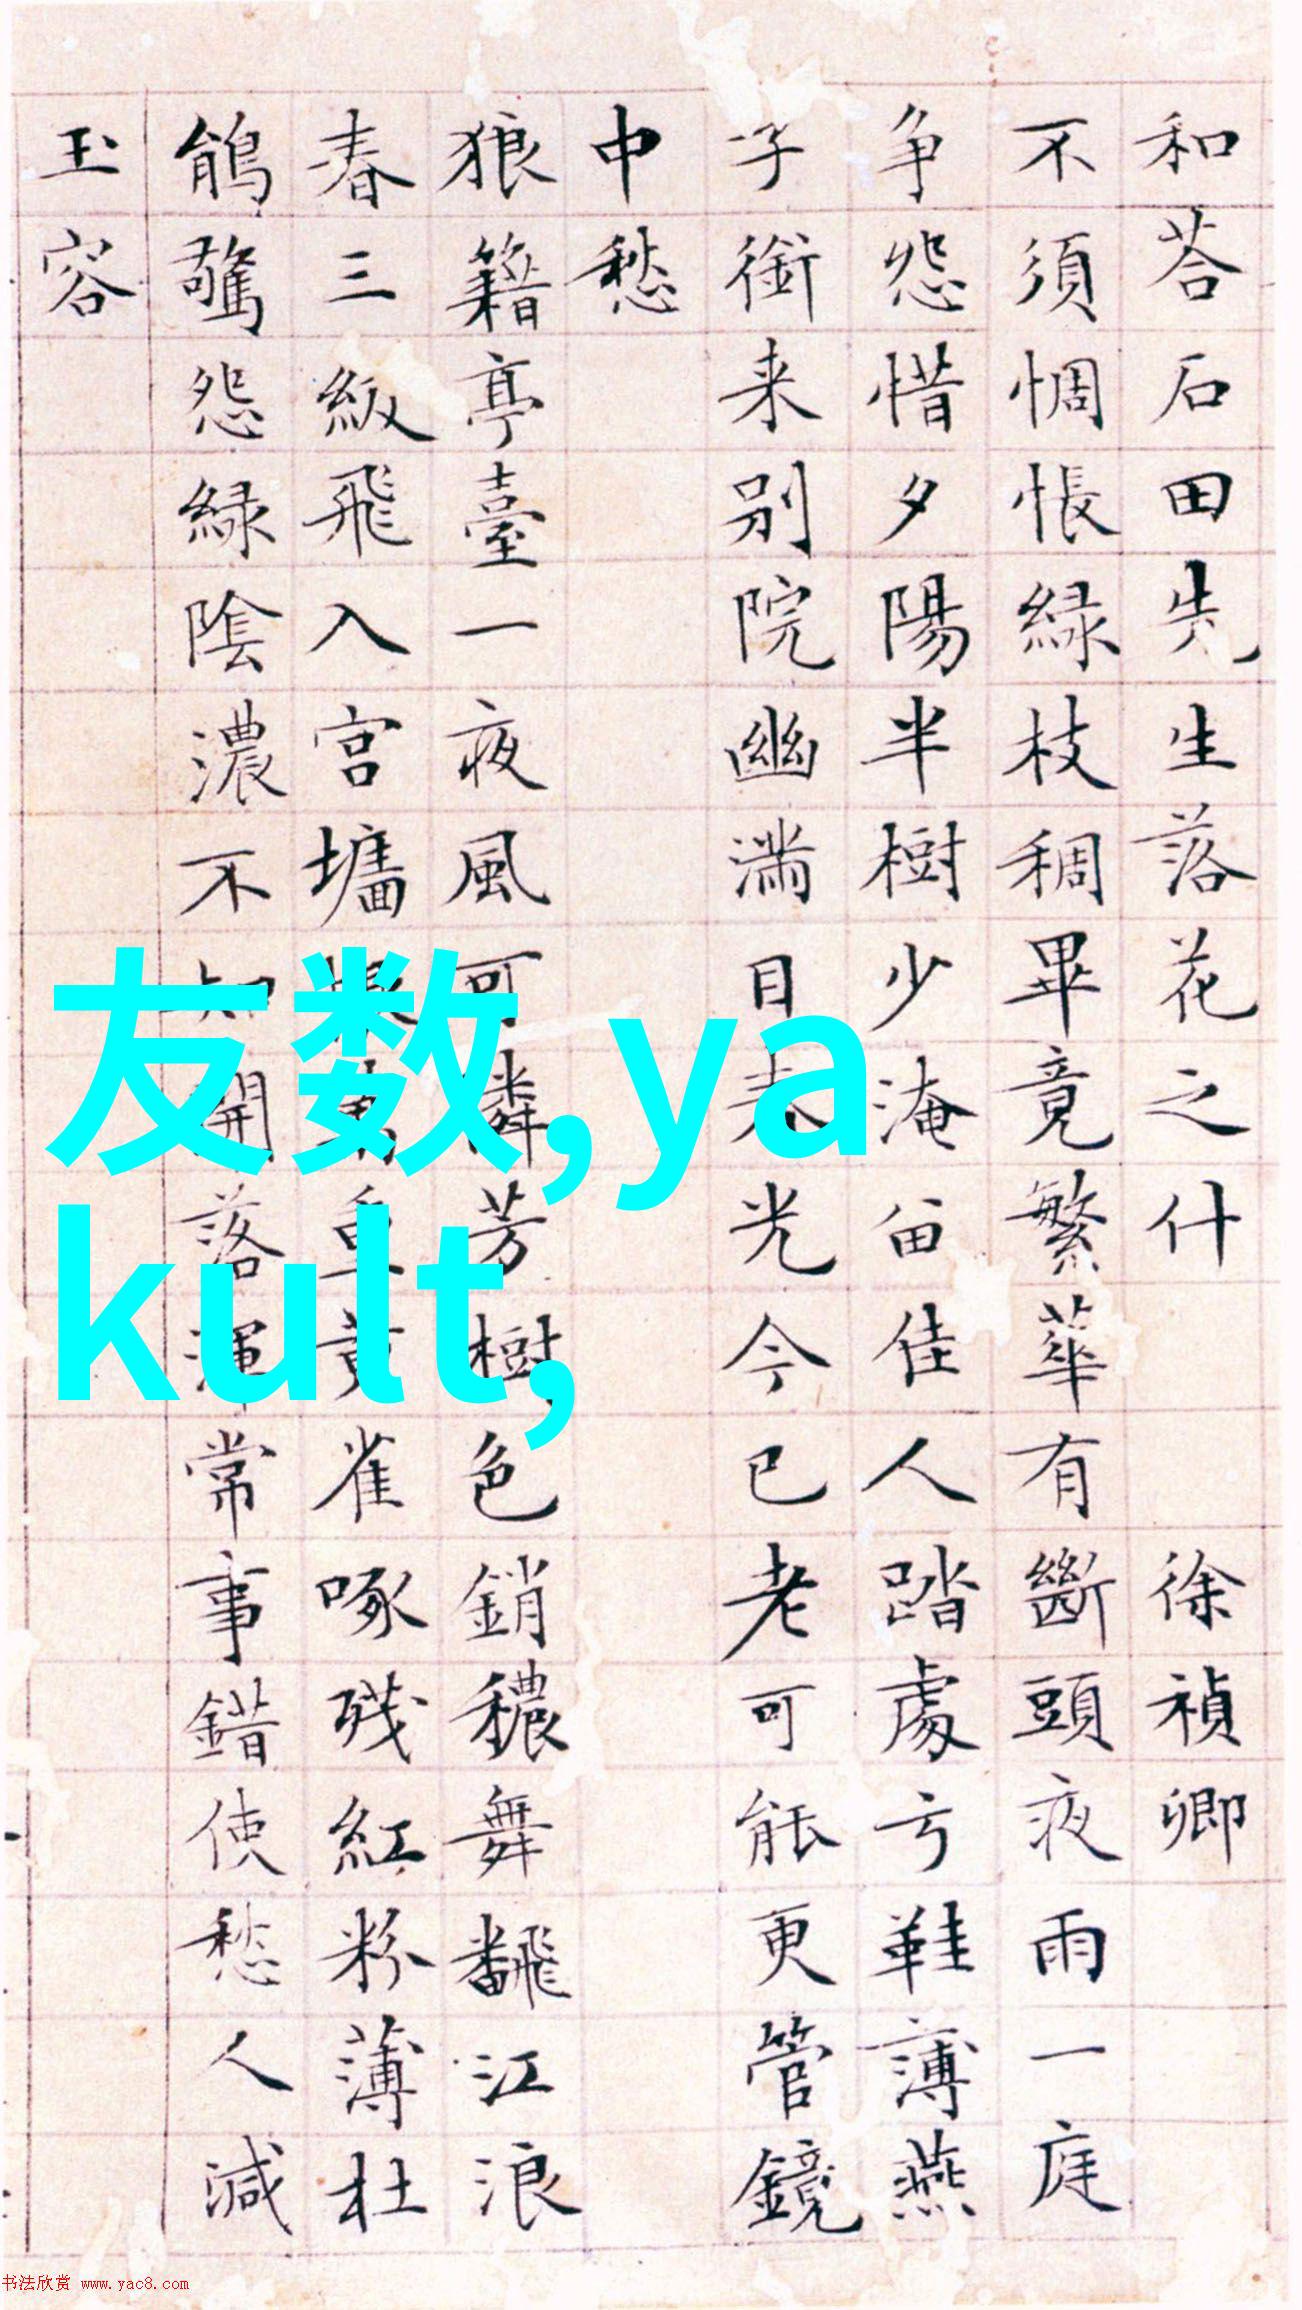 和荅石田先生落花之什 徐禎卿
不須惆悵綠枝稠畢竟繁華有斷頭夜雨一庭
争怨惜夕陽半樹少淹留佳人踏處弓鞋薄燕
子銜来别院幽滿目春光今已老可能更管鏡
中愁
狼籍亭臺一夜風可憐芳樹色銷穠舞飜江浪
春三級飛入宫墻恨萬重黄雀啄殘紅粉薄杜
鵑驚怨綠陰濃不知開落渾常事錯使愁人減
玉容
友数,ya
kult,
书法欣赏 www.yac8.com